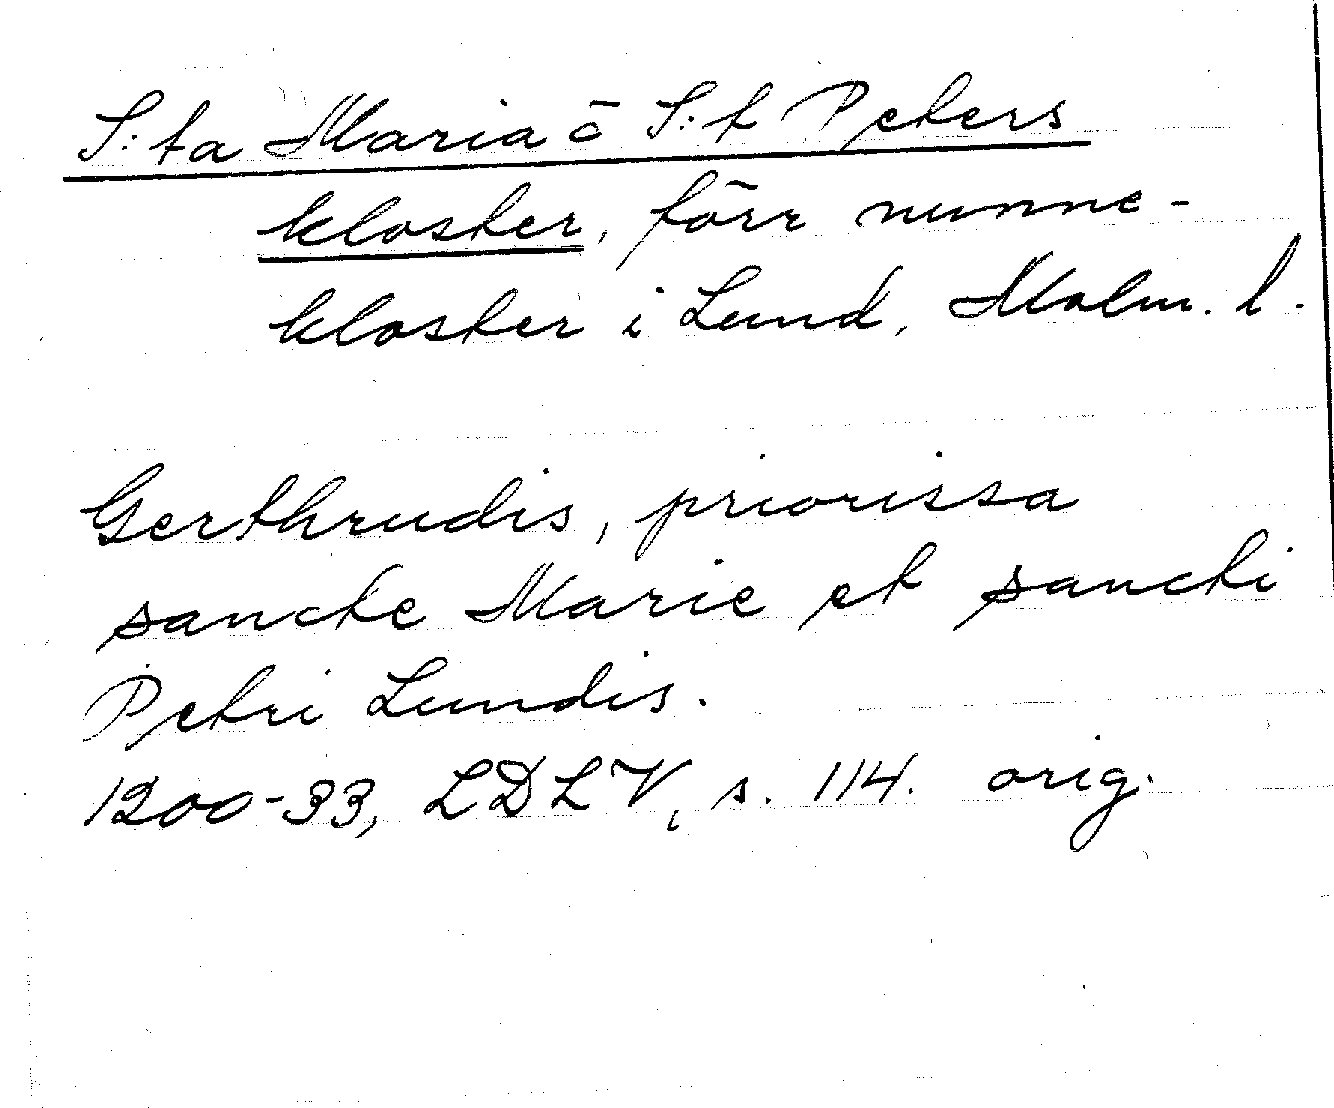 S:ta Maria o S:t Peters
kloster, förr nunne-
kloster i Lund, Malm. l.
Gerthrudis, priorissa
sancte Marie et sancti
Petri Lundis.
1200-33, LDLV, s. 114. orig.